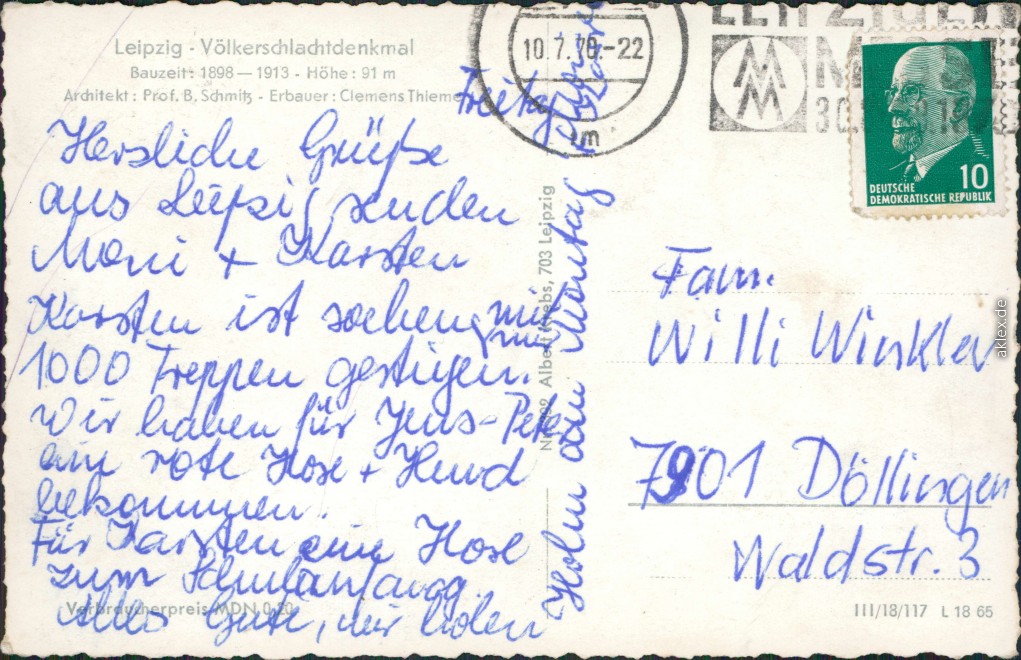 Leipzig - Völkerschlachtdenkmal
Bauzeit: 1898 — 1913 - Höhe: 91 m
Architekt: Prof. B. Schmitz - Erbauer: Clemens Thieme
Herzliche Grüße
aus Leipzig senden
Moni + Karsten
Karsten ist soeben mit mir
1000 Treppen gestiegen.
Wir haben für Jens-Peter
eine rote Hose + Hemd
bekommen.
Für Karsten eine Hose
zum Schulanfang
Alles Gute, wir holen
Holm am Montag
Freitag
Verbraucherpreis MDN 0,20
Albert Krebs, 703 Leipzig
10.7.70.-22
m
LEIPZIGER
MM
30.
DEUTSCHE
DEMOKRATISCHE REPUBLIK
10
Fam.
Willi Winkler
7901 Döllingen
Waldstr. 3
III/18/117 L 18 65
aklex.de